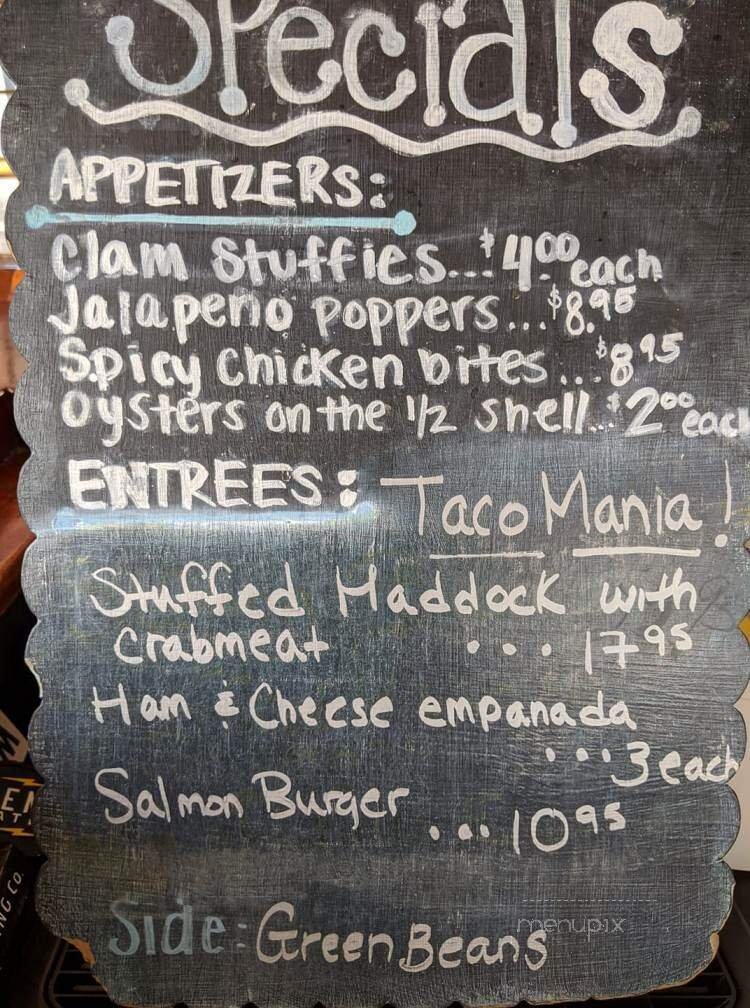 Specials
APPETIZERS:
Clam Stuffies...$4.00 each
Jalapeno poppers...$8.95
Spicy Chicken bites...$8 95
Oysters on the 1/2 shell..$2 00 each
ENTREES: Taco Mania!
Stuffed Haddock with
crabmeat ... 17 95
Ham & Cheese empanada
... 3 each
Salmon Burger
... 10 95
Side: Green Beans
menupix
NG CO.